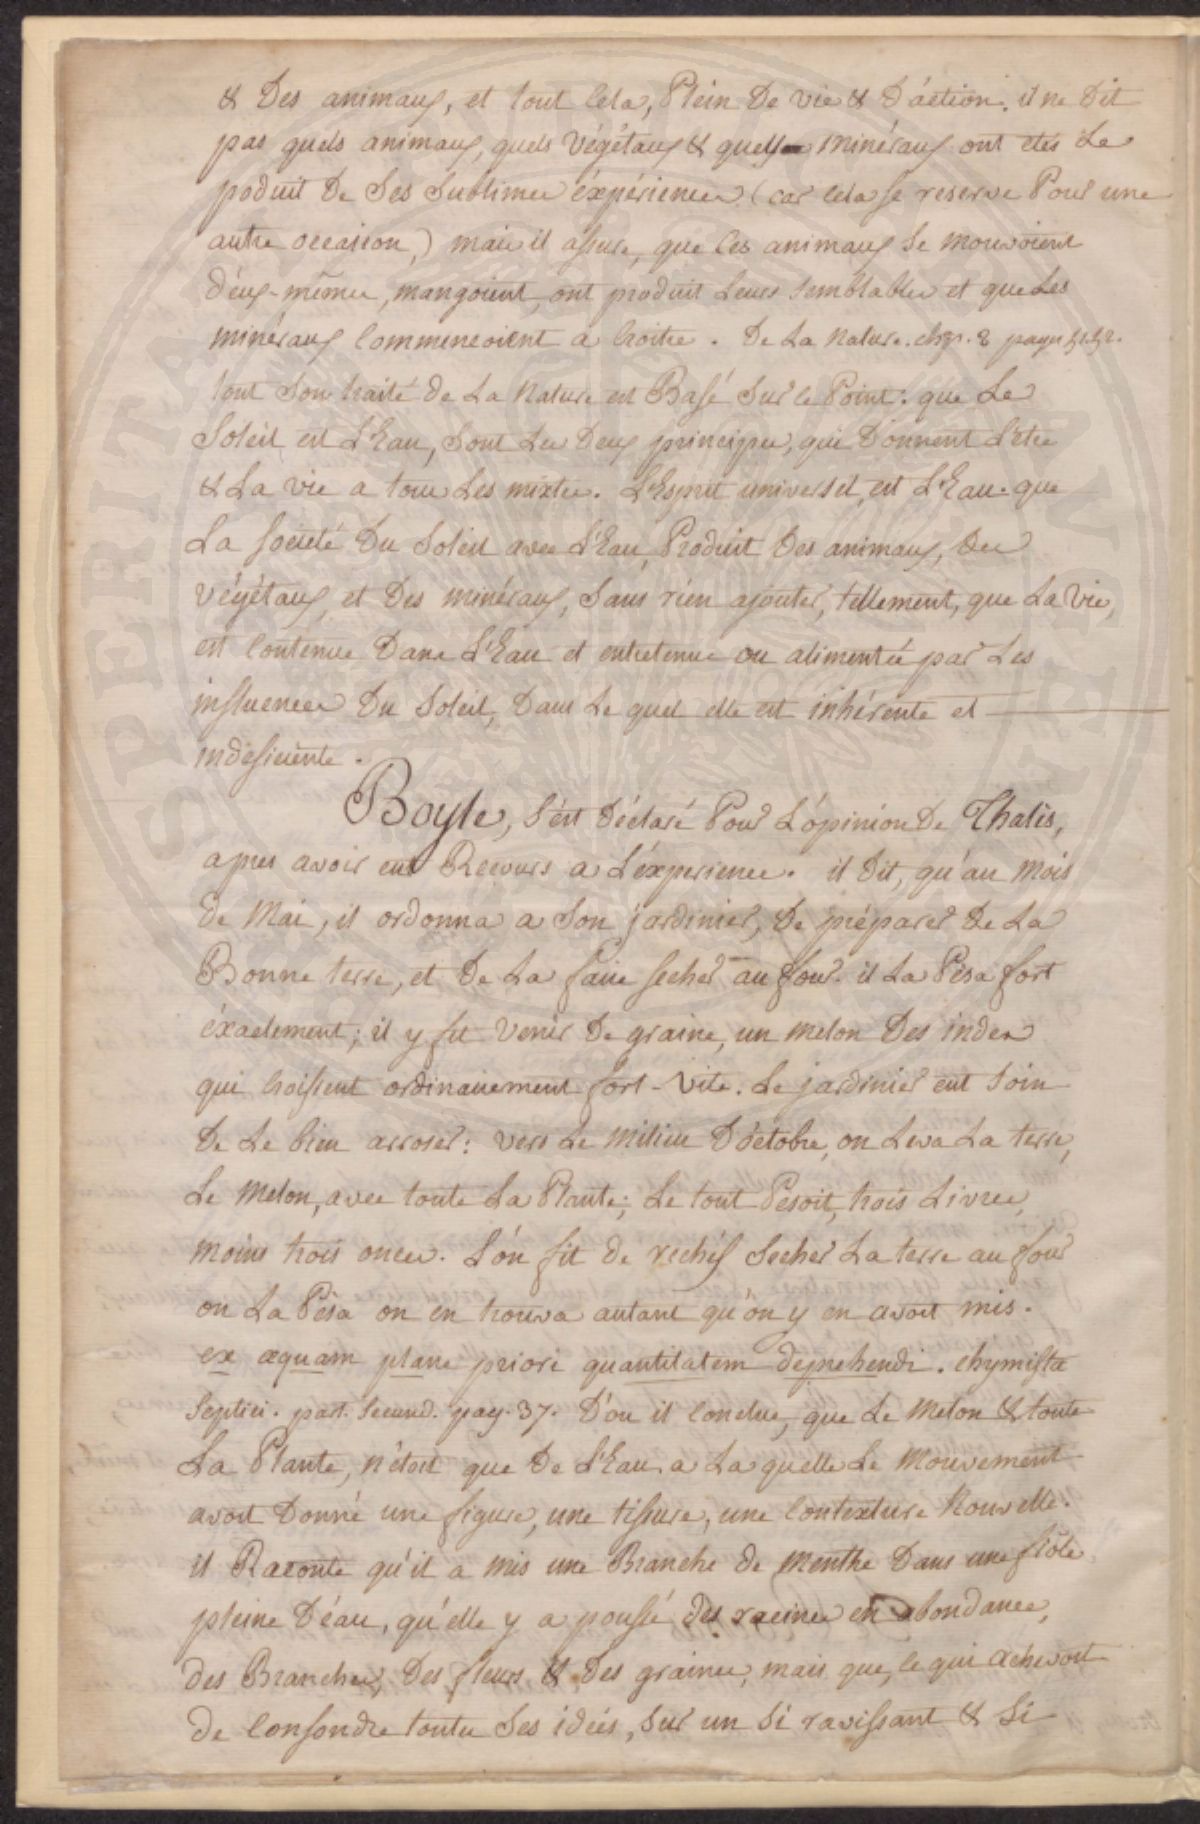 & Des animaux, et tout cela, Plein De vie & D'action. il ne Dit
pas quels animaux, quels végétaux & quels minéraux ont etés Le
poduit De Ses Sublimes éxpériences (car cela se reserve Pour une
autre occasion,) mais il assure, que Ces animaux Se mouvoient
d'eux-mêmes, mangoient, ont produit Leurs Semblables et que Les
minéraux Commencoient a Croitre. De La Nature. chap. 8
tout Son traité De La Nature est Basé Sur le Point: que Le
Soleil et L'Eau, Sont Les Deux principes, qui Donnent L'etre
& La vie a tous Les mixtes. L'Esprit universel, est L'Eau. que
La Société Du Soleil avec L'Eau, Produit Des animaux, Des
végétaux, et Des minéraux, Sans rién ajouter, tellement, que La Vie,
est Contenue Dans L'Eau et entretenue ou alimentée par Les
influences Du Soleil, Dans Le quel elle est inhérente et
indéficiente.
Boyle, S'est Déclaré Pour L'ópinión De Thalès,
apres avoir eut Recours a L'éxperience. il Dit, qu'au Mois
de Mai, il ordonna a Son jardinier, De préparer De La
Bonne terre, et De La faire secher au four. il La Pesa fort
éxactement; il y fit Venir De graine, un melon Des indes
qui Croissent ordinairement fort-Vite. Le jardinier eut Soin
De Le bien arroser: vers Le Milieu D'óctobre, on Leva La terre,
Le Melon, avec toute La Plante; Le tout Pesoit, trois Livres,
moins trois onces. L'ón fit de rechef Secher La terre au four
on La Pésa on en trouva autant qu'ón y en avoit mis.
ex æquam plane priori quantitatem deprehendi. chymista
Septici. part. Secund. pag. 37. D'ou il Conclue, que Le Melon & toute
La Plante, n'étoit que De L'Eau a La quelle Le Mouvement
avoit Donné une figure, une tissure, une Contexture Nouvelle.
il Raconte qu'il a mis une Branche de Menthe Dans une fiole
pleine D'éau, qu'elle y a poussé des racines en abondance,
des Branches, Des fleurs & Des graines, mais que, ce qui achevoit
De Confondre toutes Ses idées, Sur un Si ravissant & Si